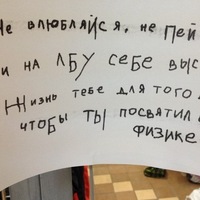 Не влюбляйся, не пей
и на лбу себе выс
Жизнь тебе для того д
чтобы ты посвятил е
физике